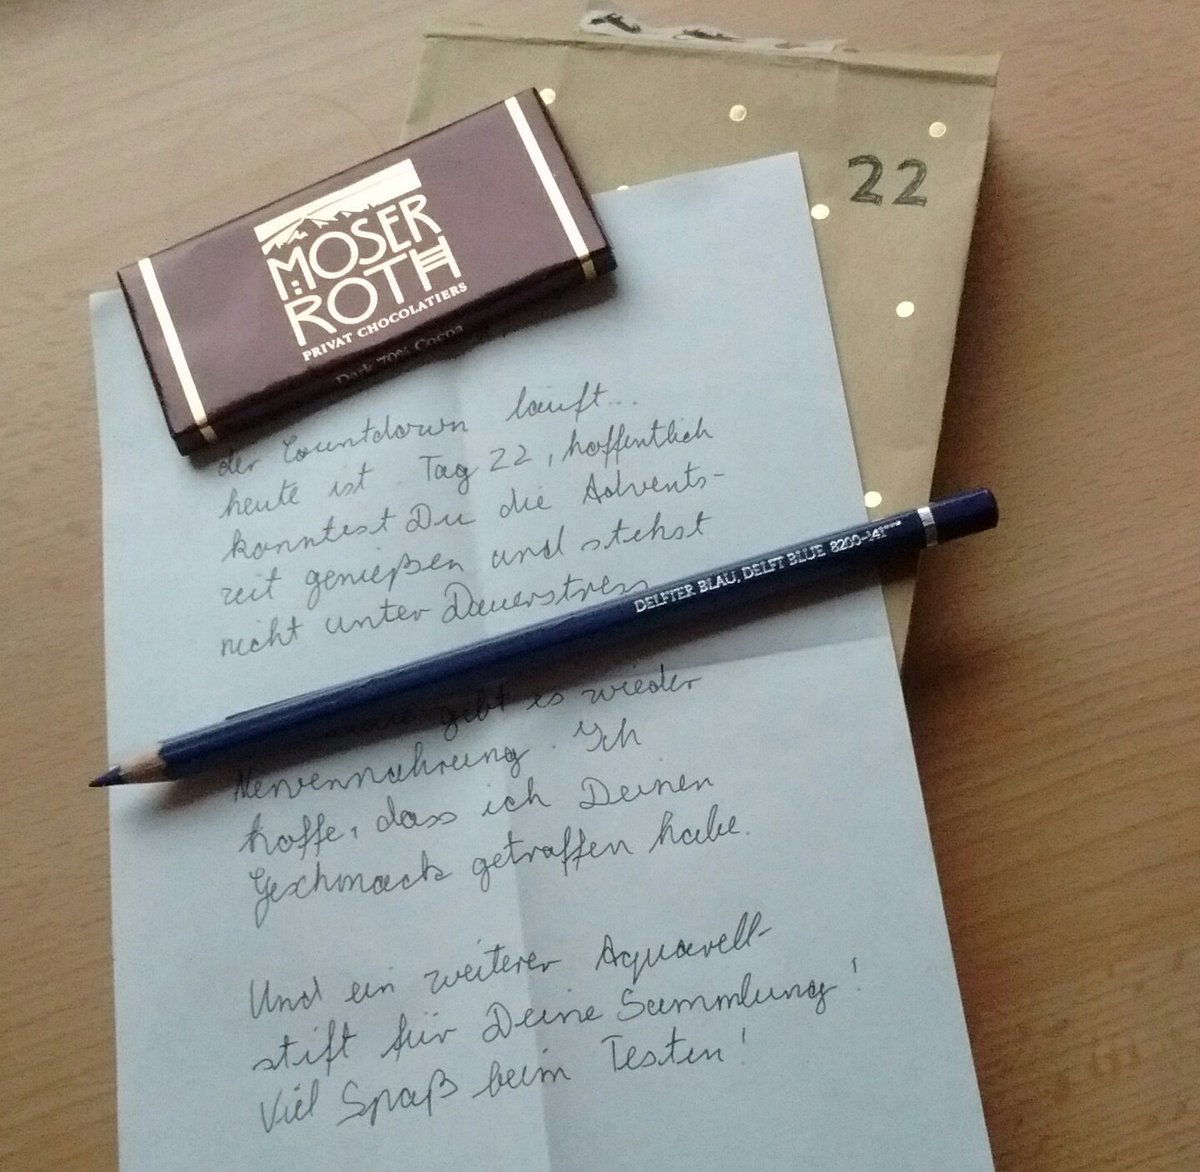 22
MOSER
ROTH
PRIVAT CHOCOLATIERS
Dark 70% Cocoa
der Countdown läuft...
heute ist Tag 22, hoffentlich
konntest Du die Advents-
zeit genießen und stehst
nicht unter Dauerstress
DELFTER BLAU, DELFT BLUE 8200-141***
gibt es wieder
Nervennahrung. Ich
hoffe, dass ich Deinen
Geschmack getroffen habe.
Und ein weiterer Aquarell-
stift für Deine Sammlung!
Viel Spaß beim Testen!